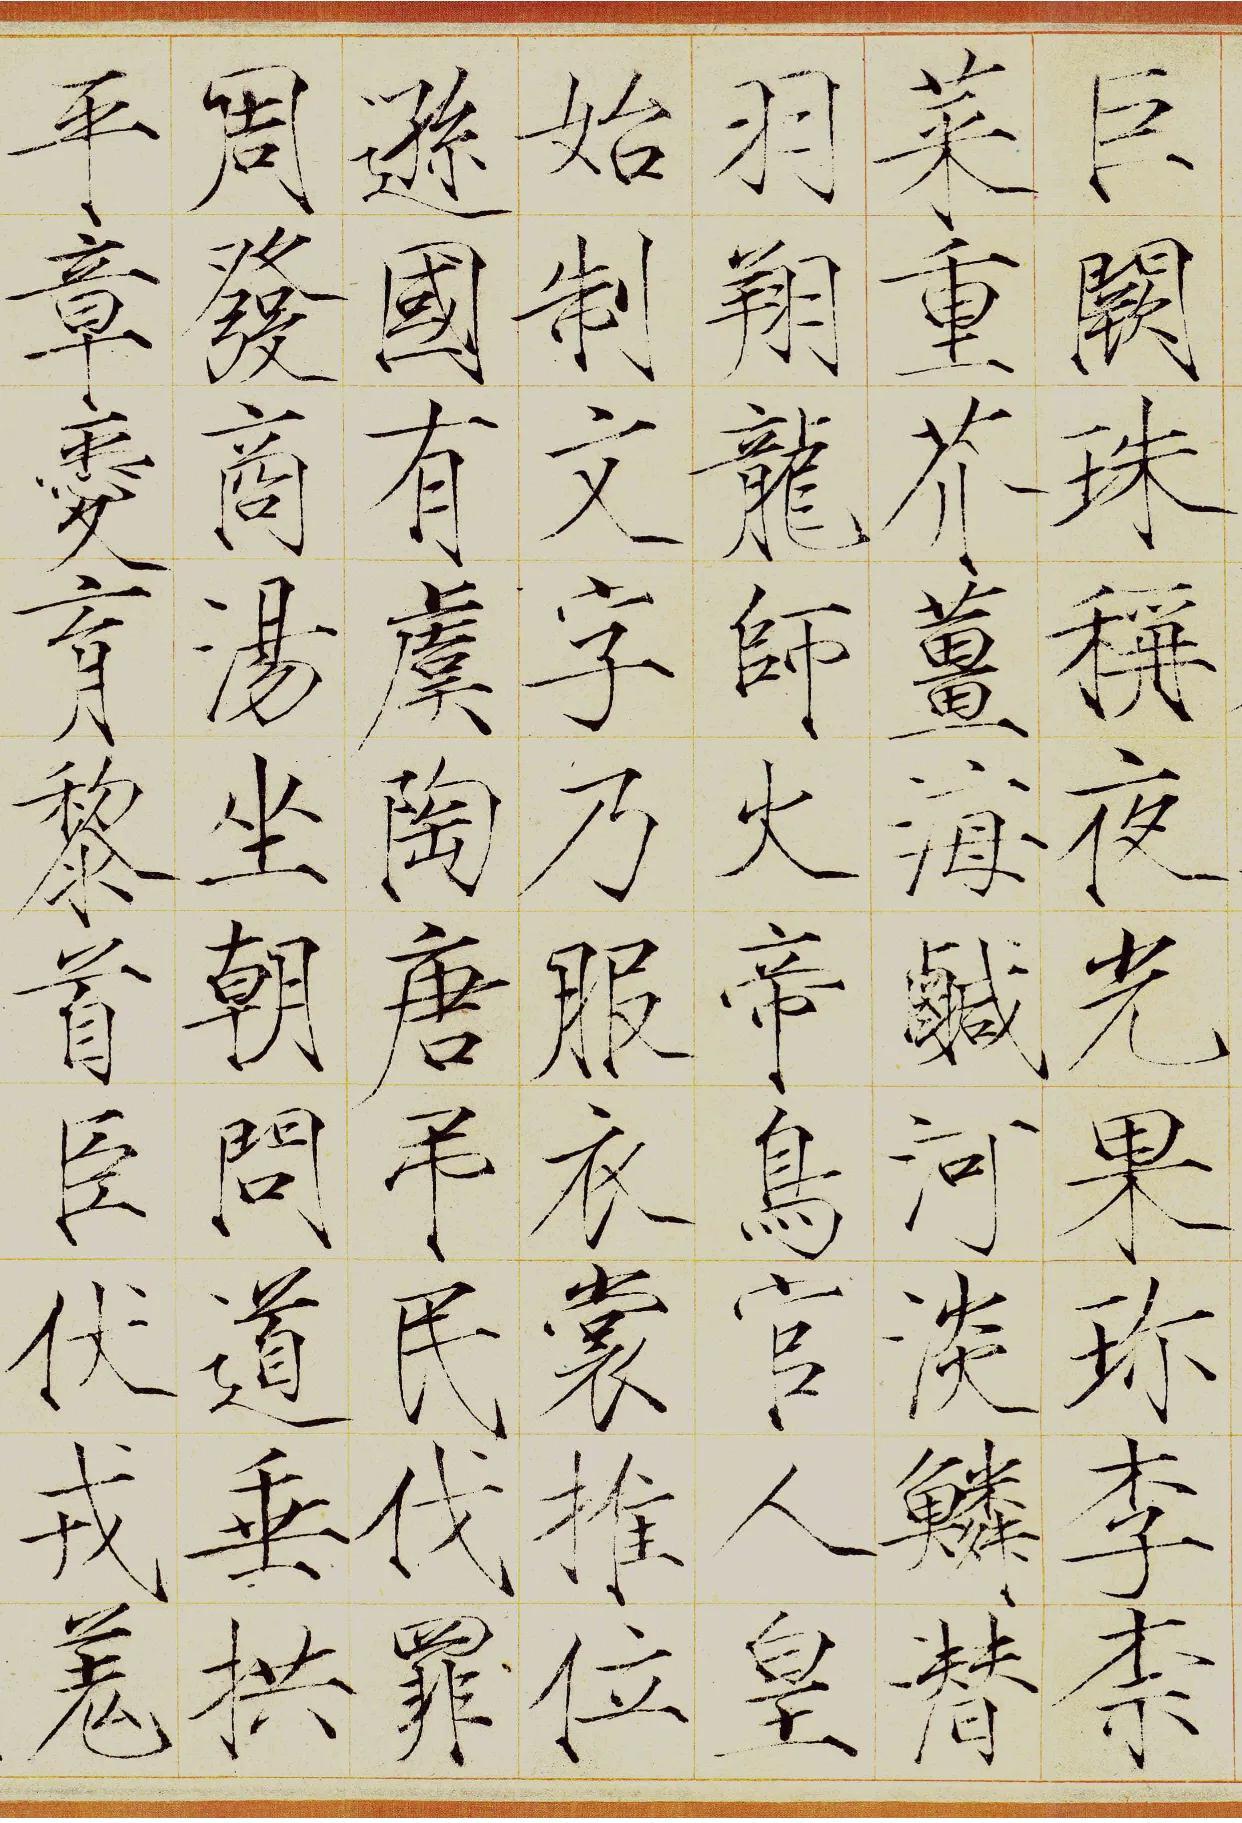 巨闕珠稱夜光果珎李柰
菜重芥薑海鹹河淡鱗潛
羽翔龍師火帝鳥官人皇
始制文字乃服衣裳推位
遜國有虞陶唐弔民伐罪
周發商湯坐朝問道垂拱
平章愛育黎首臣伏戎羌